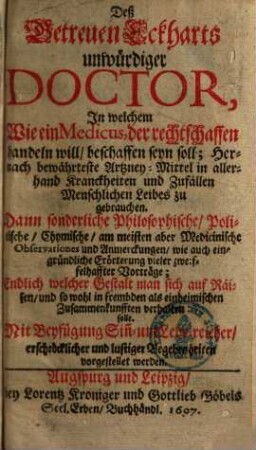 Deß
Getreuen Eckharts
unwürdiger
DOCTOR,
In welchem
Wie ein Medicus, der rechtschaffen
handeln will/ beschaffen seyn soll; Her-
nach bewährteste Artzney-Mittel in aller-
hand Kranckheiten und Zufällen
Menschlichen Leibes zu
gebrauchen.
Dann sonderliche Philosophische/ Poli-
tische/ Chymische/ am meisten aber Medicinische
Observationes und Anmerckungen/ wie auch ein-
gründliche Erörterung vieler zweif-
felhaffter Vorträge;
Endlich welcher Gestalt man sich auf Räi-
sen/ und so wohl in frembden als einheimischen
Zusammenkunfften verhalten
solle.
Mit Beyfügung Sinn- und Lehr-reicher/
erschröcklicher und lustiger Begebenheiten
vorgestellet werden.
Augspurg und Leipzig/
bey Lorentz Kroniger und Gottlieb Göbels
Seel. Erben/ Buchhändl. 1697.